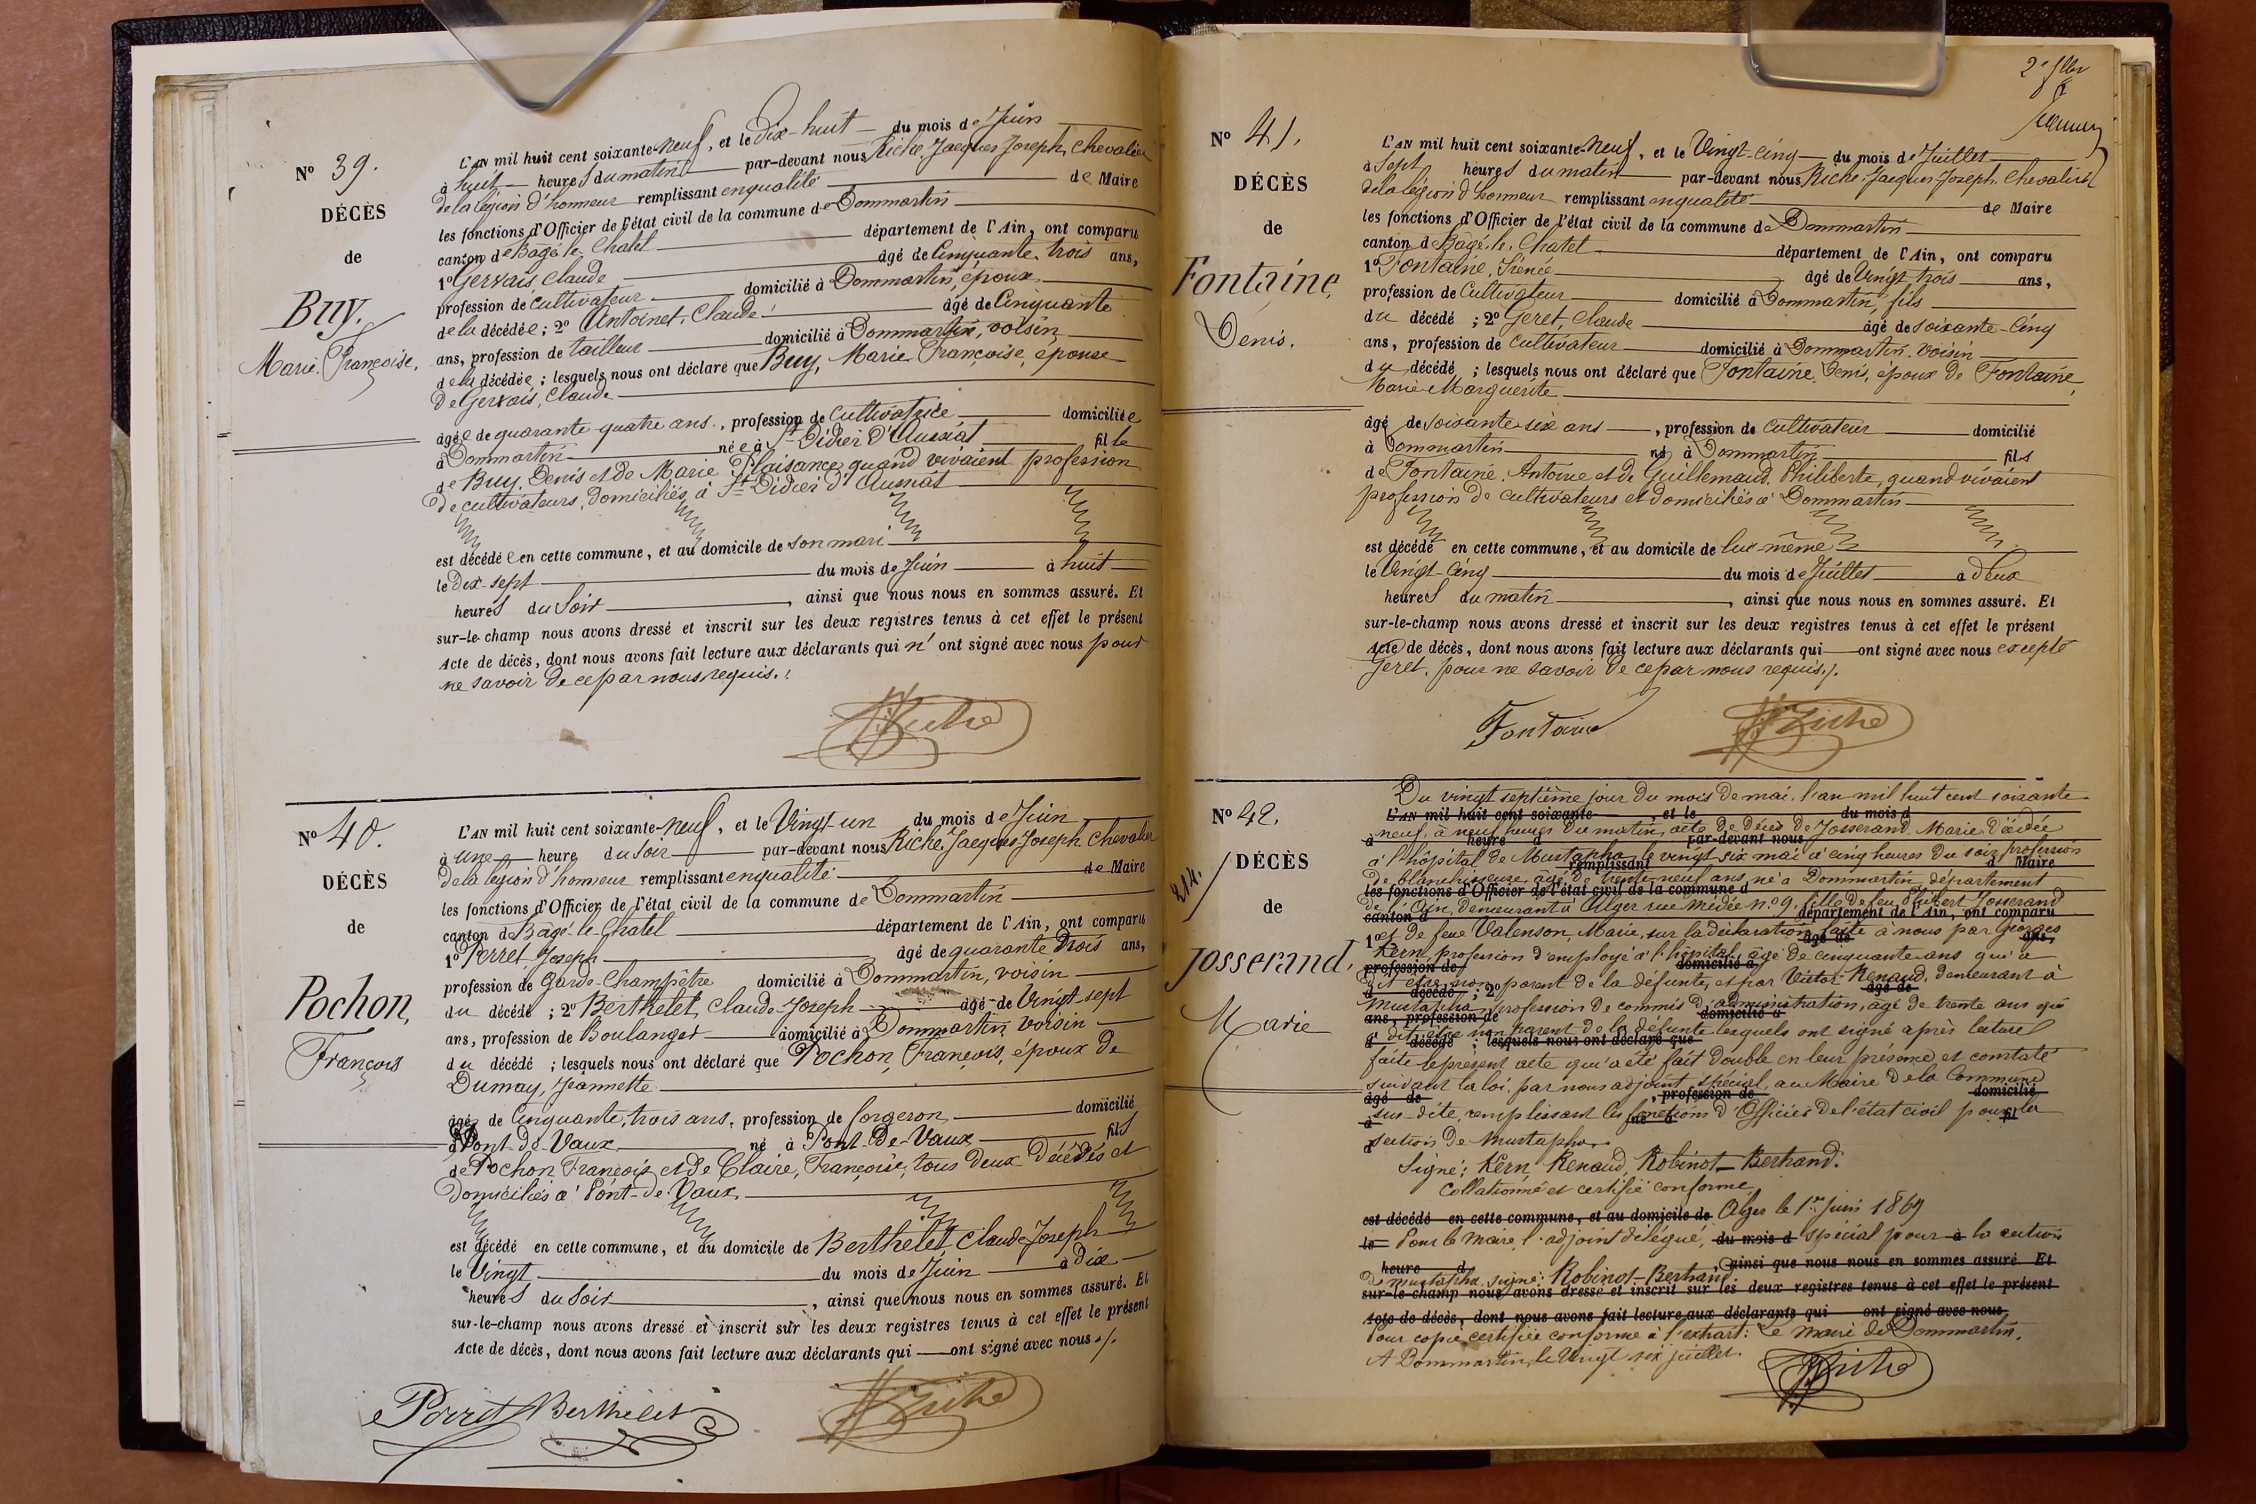 N° 39.
DÉCÈS
de
Buy,
Marie Françoise.
L'AN mil huit cent soixante-neuf, et le Dix-huit du mois de Juin
à huit heures du matin par-devant nous Riche Jacques Joseph, Chevalier
de la légion d'honneur remplissant en qualité de Maire
les fonctions d'Officier de l'état civil de la commune de Dommartin
canton de Bâgé-le-Chatel département de l'Ain, ont comparu
1° Gervais, Claude âgé de Cinquante-trois ans,
profession de cultivateur domicilié à Dommartin, époux
de la décédée; 2° Antoinet, Claude âgé de Cinquante
ans, profession de tailleur domicilié à Dommartin, voisin
de la décédée; lesquels nous ont déclaré que Buy, Marie Françoise, épouse
De Gervais, Claude
âgée de quarante-quatre ans, profession de Cultivatrice domiciliée
à Dommartin née à St Didier d'Aussiat fille
de Buy, Denis et de Marie Plaisance, quand vivaient profession
De cultivateurs, Domiciliés à St Didier d'Aussiat
est décédée en cette commune, et au domicile de son mari
le Dix-sept du mois de Juin à huit
heures du Soir, ainsi que nous nous en sommes assuré. Et
sur-le-champ nous avons dressé et inscrit sur les deux registres tenus à cet effet le présent
Acte de décès, dont nous avons fait lecture aux déclarants qui n'ont signé avec nous pour
ne savoir de ce par nous requis./.
JJ Riche
N° 40.
DÉCÈS
de
Pochon,
François
L'AN mil huit cent soixante-neuf, et le Vingt-un du mois de Juin
à une heure du Soir par-devant nous Riche Jacques Joseph Chevalier
de la légion d'honneur remplissant en qualité de Maire
les fonctions d'Officier de l'état civil de la commune de Dommartin
canton de Bâgé-le-Chatel département de l'Ain, ont comparu
1° Perret Joseph âgé de quarante trois ans,
profession de Garde-Champêtre domicilié à Dommartin, voisin
du décédé; 2° Berthelet, Claude-Joseph âgé de Vingt-sept
ans, profession de Boulanger domicilié à Dommartin, voisin
du décédé; lesquels nous ont déclaré que Pochon, François, époux de
Dumay, Jeannette
âgé de Cinquante-trois ans, profession de forgeron domicilié
à Pont-de-Vaux né à Pont-De-Vaux fils
de Pochon François et de Claire, Françoise, tous deux Décédés et
Domiciliés à Pont-de-Vaux.
est décédé en cette commune, et au domicile de Berthelet, Claude Joseph
le Vingt du mois de Juin à Dix
heures du Soir, ainsi que nous nous en sommes assuré. Et
sur-le-champ nous avons dressé et inscrit sur les deux registres tenus à cet effet le présent
Acte de décès, dont nous avons fait lecture aux déclarants qui ont signé avec nous./.
Perret Berthelet JJ Riche
N° 41.
DÉCÈS
de
Fontaine,
Denis.
L'AN mil huit cent soixante-neuf, et le Vingt-cinq du mois de Juillet
à Sept heures du matin par-devant nous Riche Jacques Joseph Chevalier
de la légion d'honneur remplissant en qualité de Maire
les fonctions d'Officier de l'état civil de la commune de Dommartin
canton de Bâgé-le-Chatel département de l'Ain, ont comparu
1° Fontaine, Irénée âgé de Vingt trois ans,
profession de Cultivateur domicilié à Dommartin, fils
du décédé; 2° Geret, Claude âgé de soixante-Cinq
ans, profession de cultivateur domicilié à Dommartin, voisin
du décédé; lesquels nous ont déclaré que Fontaine, Denis, époux de Fontaine,
Marie Marguerite
âgé de Soixante-six ans, profession de Cultivateur domicilié
à Dommartin né à Dommartin fils
de Fontaine, Antoine et de Guillemaud, Philiberte, quand vivaient
profession de cultivateurs et domiciliés à Dommartin
est décédé en cette commune, et au domicile de lui-même
le Vingt-Cinq du mois de Juillet à deux
heures du matin, ainsi que nous nous en sommes assuré. Et
sur-le-champ nous avons dressé et inscrit sur les deux registres tenus à cet effet le présent
Acte de décès, dont nous avons fait lecture aux déclarants qui ont signé avec nous excepté
Geret, pour ne savoir de ce par nous requis./.
Fontaine JJ Riche
N° 42.
DÉCÈS
de
Josserand,
Marie
214.
Du vingt septième jour du mois de mai, l'an mil huit cent soixante
L'AN mil huit cent soixante et le du mois d
neuf, à neuf heures du matin, acte de décès de Josserand Marie Décédée
à heure d par-devant nous
à l'hôpital de Mustapha le vingt-six mai à cinq heures du soir, profession
remplissant d Maire
de blanchisseuse, âgé de trente-neuf ans, né à Dommartin département
les fonctions d'Officier de l'état civil de la commune d
de l'Ain, demeurant à Alger rue Médée n° 9, fille de feu Hubert Josserand
canton d département de l'Ain, ont comparu
et de feue Valenson, Marie, sur la déclaration faite à nous par Georges
1° âgé de ans,
Kern, profession d'employé à l'hôpital, âgé de cinquante ans qui a
profession de domicilié à
dit être non parent de la défunte, et par Victor Renaud, demeurant à
d décédé; 2° âgé de
Mustapha, profession de commis d'administration, âgé de trente ans qui
ans, profession de domicilié à
a dit être non parent de la défunte lesquels ont signé après lecture
d décédé; lesquels nous ont déclaré que
faite le présent acte qui a été fait double en leur présence et constaté
suivant la loi, par nous adjoint spécial, au Maire de la Commune
âgé de, profession de domicilié
sus-dite, remplissant les fonctions d'Officier de l'état civil pour la
à né à fil
section de Mustapha.
d
Signé: Kern, Renaud, Robinot-Bertrand.
Collationné et certifié conforme,
est décédé en cette commune, et au domicile de Alger le 1er Juin 1869
le Pour le Maire, l'adjoint délégué, du mois d spécial pour à la section
heure d, ainsi que nous nous en sommes assuré. Et
de Mustapha, signé: Robinot-Bertrand.
sur-le-champ nous avons dressé et inscrit sur les deux registres tenus à cet effet le présent
Acte de décès, dont nous avons fait lecture aux déclarants qui ont signé avec nous,
Pour copie certifiée conforme à l'extrait: Le Maire de Dommartin.
A Dommartin, le Vingt six juillet.
JJ Riche